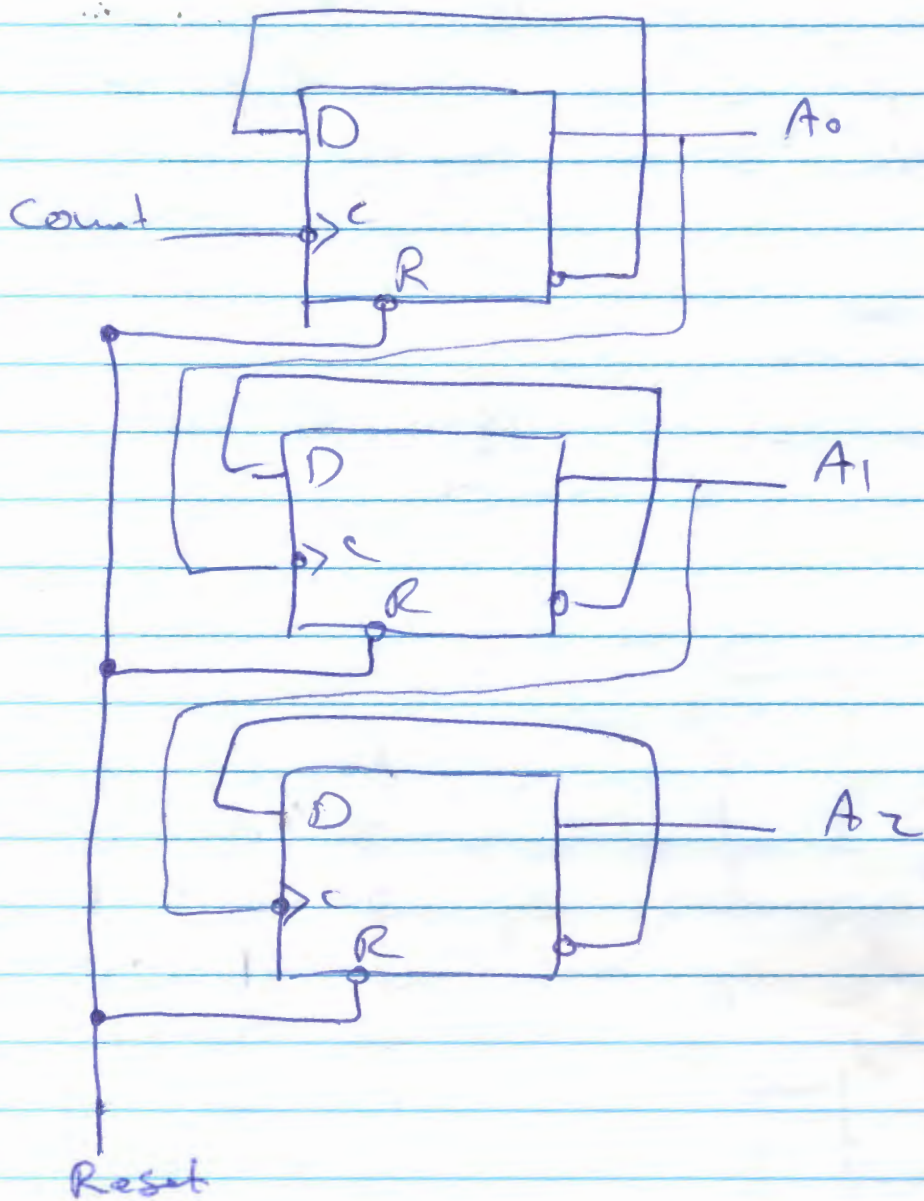 D A0
Count C
R
D A1
C
R
D A2
C
R
Reset